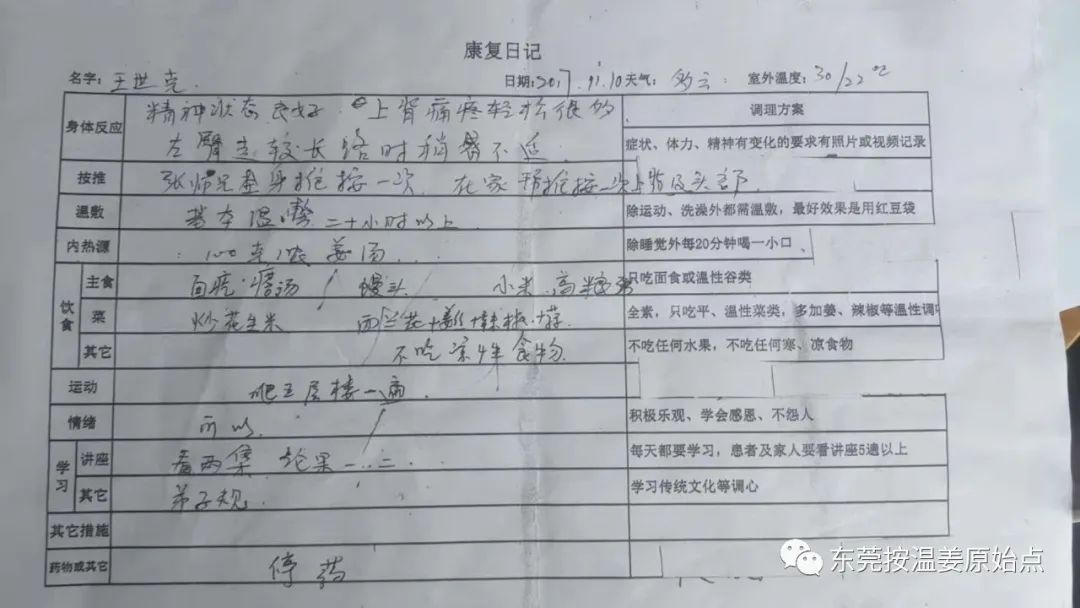 康复日记
名字：王世克 日期：2017.11.10 天气：多云 室外温度：30/22℃
身体反应 精神状态良好．上背痛疼轻松很多 调理方案
左臂走较长路时稍署不适． 症状、体力、精神有变化的要求有照片或视频记录
按推 张师兄全身推按一次．在家 推按一次上背及头部．
温敷 基本温敷二十小时以上 除运动、洗澡外都需温敷，最好效果是用红豆袋
内热源 100克浓姜汤... 除睡觉外每20分钟喝一小口、
饮食 主食 面 汤 馒头 小米．高粮粥 只吃面食或温性谷类
菜 炒花生米 西兰花+姜+辣椒 全素，只吃平、温性菜类，多加姜、辣椒等温性调
其它 不吃凉性食物． 不吃任何水果，不吃任何寒、凉食物
运动 爬五层楼一遍．
情绪 可以． 积极乐观、学会感恩、不怨人
学习 讲座 看两集 每天都要学习，患者及家人要看讲座5遍以上
其它 弟子规． 学习传统文化等调心
其它措施
药物或其它 停药
东莞按温姜原始点